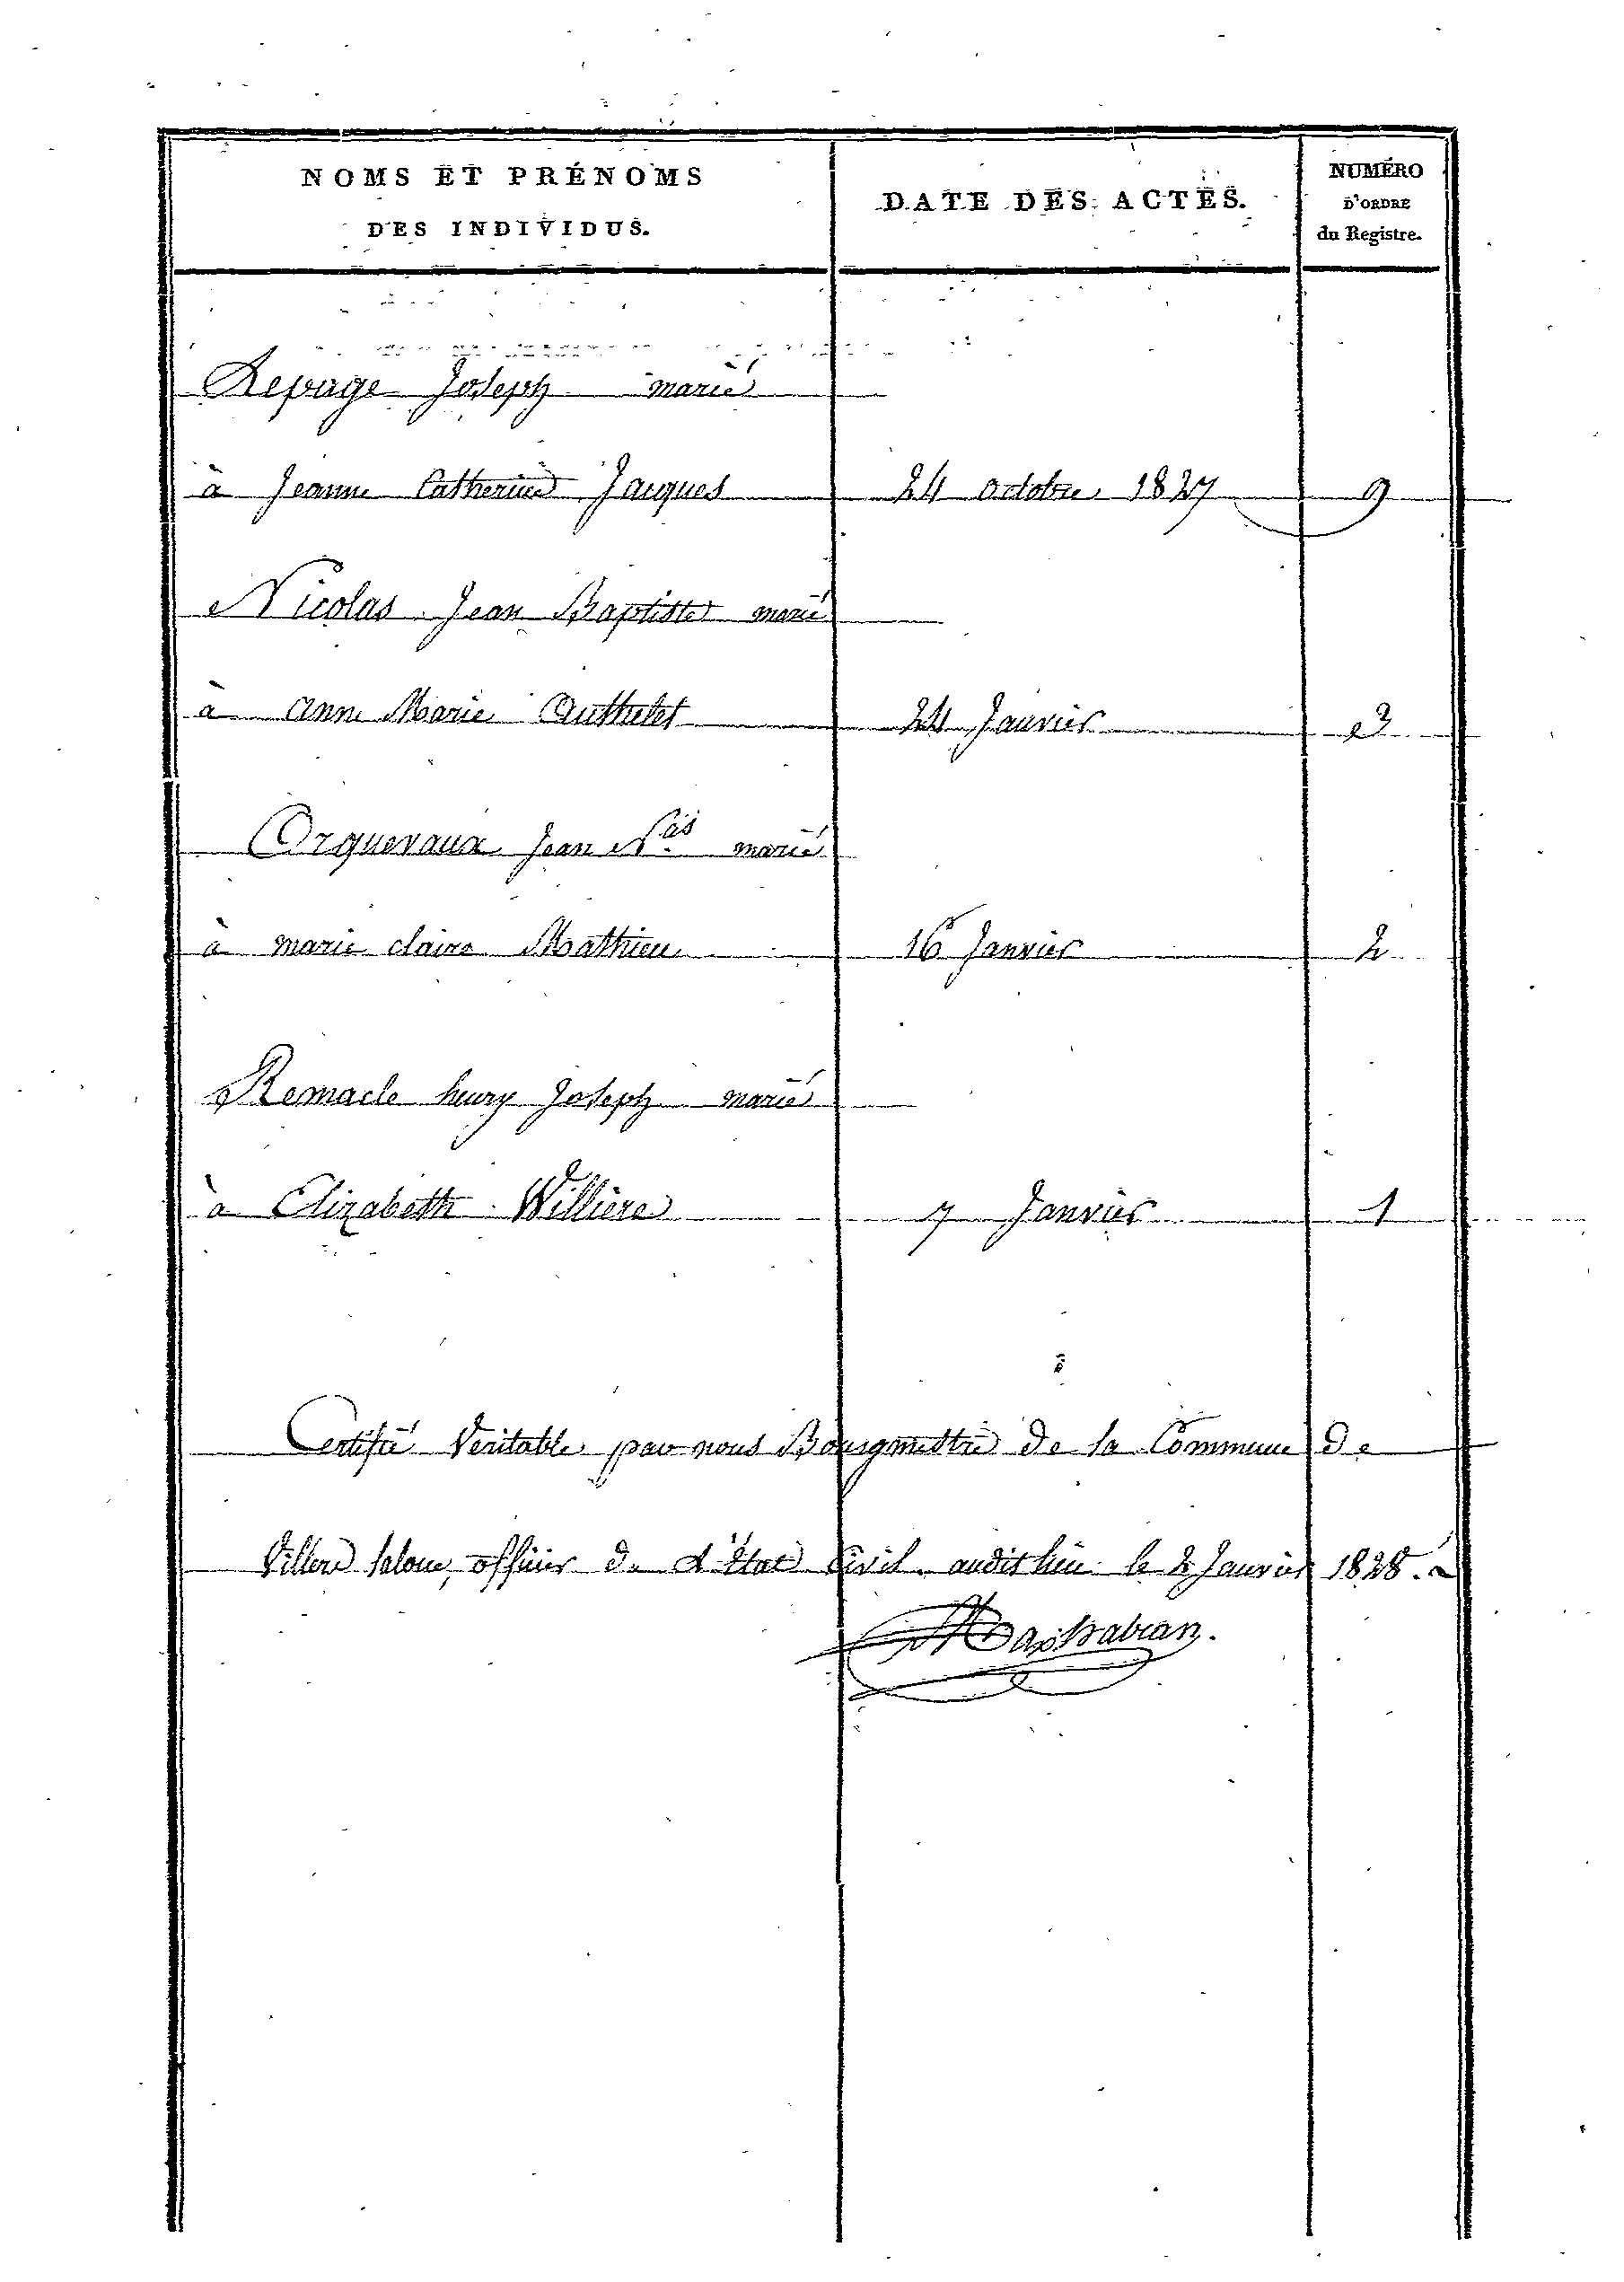 NOMS ET PRÉNOMS
DES INDIVIDUS.
DATE DES ACTES.
NUMÉRO
D'ORDRE
du Registre.
Lepage Joseph marié
à Jeanne Catherine Jacques 24 octobre 1827 9
Nicolas Jean Baptiste marié
à Anne Marie 24 Janvier 3
Orquevaux Jean N.as marié
à marie claire Mathieu 16 Janvier 2
Remacle henry Joseph marié
à Elizabeth Willière 7 Janvier 1
Certifié Veritable par nous Bourgmestre de la Commune de
Villers laloue, officier de d'Etat Civil audit lieu le 2 Janvier 1828.